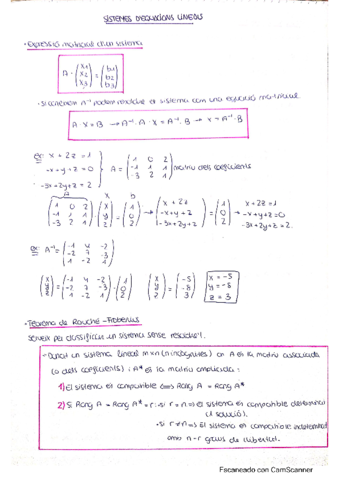 SISTEMES D'EQUACIONS LINEALS
· Expressió matricial d'un sistema
A · (x1 x2 x3) = (b1 b2 b3)
· Si coneixem A⁻¹ podem resoldre el sistema com una equació matricial
A · X = B → A⁻¹ · A · X = A⁻¹ · B → X = A⁻¹ · B
ex: x + 2z = 1
-x + y + z = 0
-3x + 2y + z = 2
A = (1 0 2 / -1 1 1 / -3 2 1) matriu dels coeficients
A x b
(1 0 2 / -1 1 1 / -3 2 1) · (x y z) = (1 0 2) → (x + 2z / -x + y + z / -3x + 2y + z) = (1 0 2) → x + 2z = 1
-x + y + z = 0
-3x + 2y + z = 2
ex: A⁻¹ = (-1 4 -2 / -2 7 -3 / 1 -2 1)
(x y z) = (-1 4 -2 / -2 7 -3 / 1 -2 1) · (1 0 2) (x y z) = (-5 -8 3) x = -5
y = -8
z = 3
· Teorema de Rouché-Frobenius
Serveix per classificar un sistema sense resoldre'l.
· Donat un sistema lineal m×n (n incògnites) on A és la matriu associada
(o dels coeficients) i A* és la matriu ampliada:
1) El sistema és compatible Rang A = Rang A*
2) Si Rang A = Rang A* = r: · si r = n ⇒ el sistema és compatible determinat
(1 solució).
· si r ≠ n ⇒ El sistema és compatible indeterminat
amb n-r graus de llibertat.
Escaneado con CamScanner